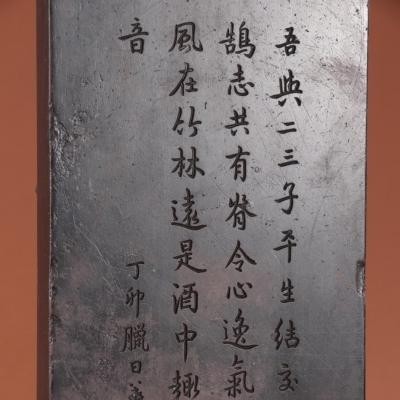 吾與二三子平生結交
鵠志共有脊令心逸氣
風在竹林遠是酒中趣
音
丁卯臘日